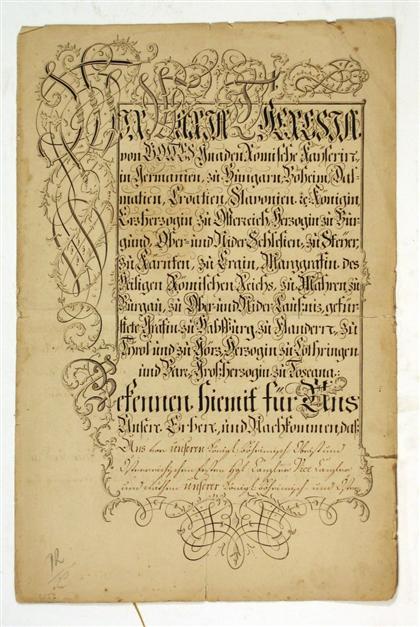 Wir Maria Theresia
von GOTTES Gnaden Römische Kayserin,
in Germanien, zu Hungarn, Böheim, Dal-
matien, Croatien, Slavonien, &c: Königin
Ertzherzogin zu Osterreich, Herzogin zu Bur-
gund, Ober- und Nider Schlesien, zu Steyer,
zu Karnten, zu Crain, Marggräfin des
Heiligen Römischen Reichs, zu Mähren, zu
Burgau, zu Ober- und Nider Laußniz, gefür-
stete Gräfin zu Habspurg, zu Flandern, zu
Tyrol und zu Görz, Herzogin zu Lothringen
und Barr, Großherzogin zu Toscana:
Bekennen hiemit für Uns
Unsere Erben, und Nachkommen, daß
Uns von unseren Königl. böheimisch Obrist und
Österreichischen Canzler Vice Canzler
und unserer Königl. böheimisch und